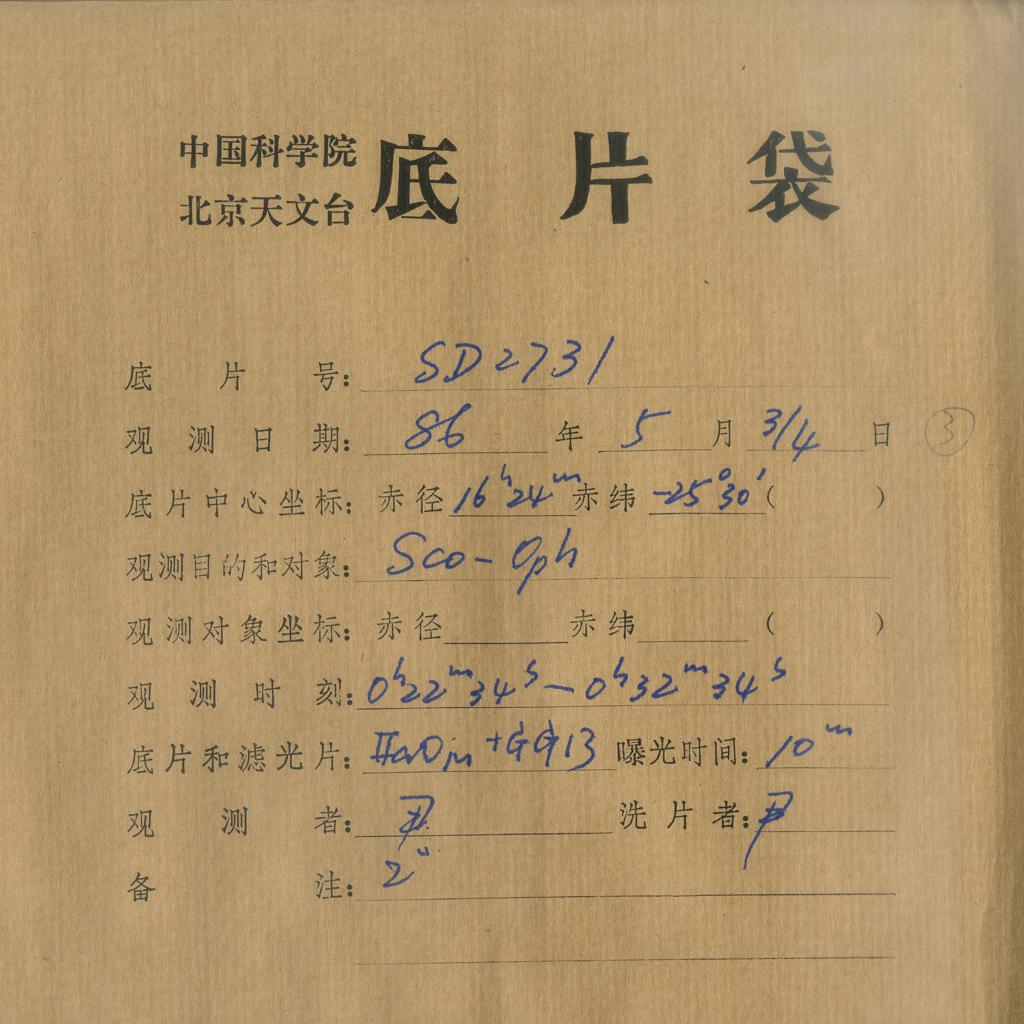 中国科学院
北京天文台
底片袋
底片号: SD2731
观测日期: 86年5月3/4日 ③
底片中心坐标: 赤径16ʰ24ᵐ赤纬-25°30′( )
观测目的和对象: Sco-Oph
观测对象坐标: 赤径 赤纬 ( )
观测时刻: 0ʰ22ᵐ34ˢ-0ʰ32ᵐ34ˢ
底片和滤光片: IIaO +GG13 曝光时间: 10ᵐ
观测者: 洗片者:
备注: 2″